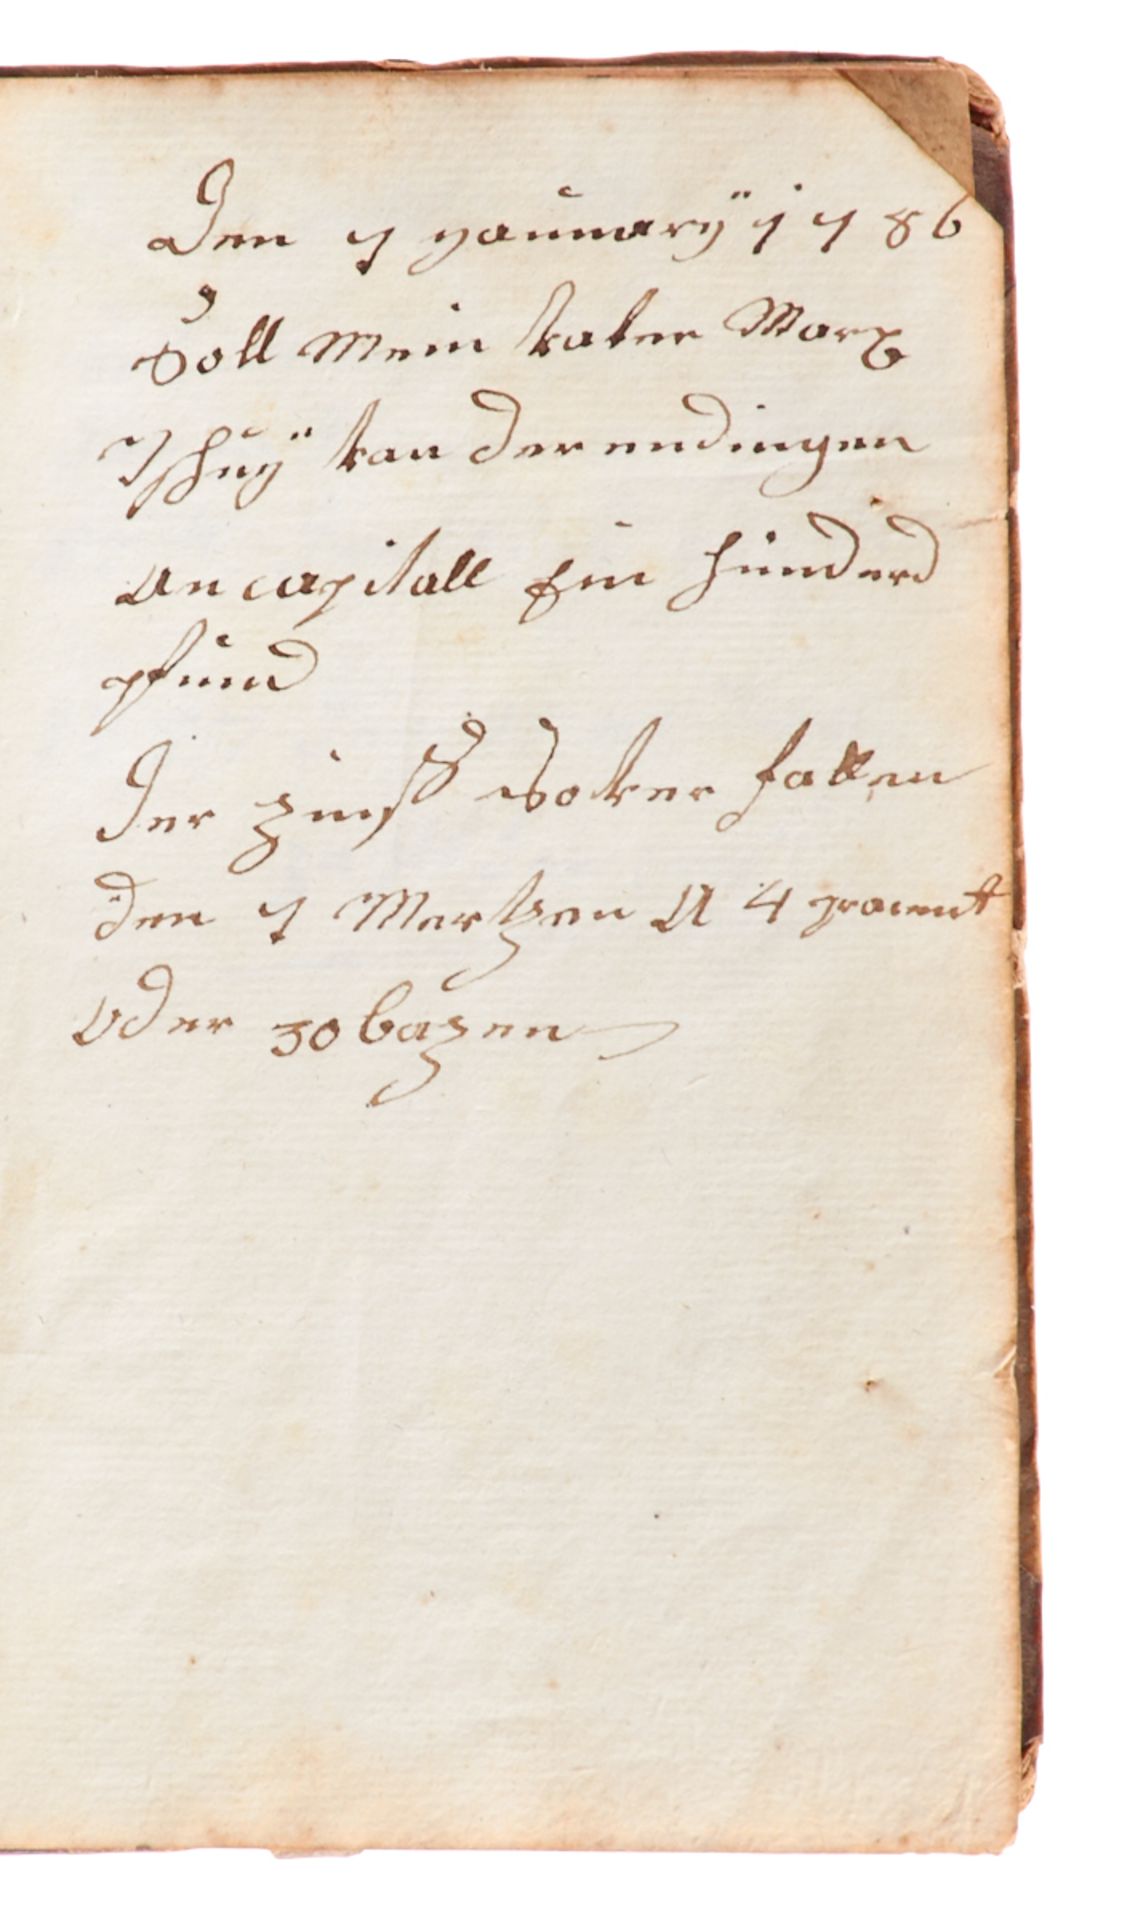 Den 7 yanuwarÿ 1786
Soll Mein vatter Marx
Tschuÿ von derendingen
An capitall Ein hunderd
pfund
Der zinß darvon fallen
den 7 Mertzen A 4 procent
Oder 30 bazen